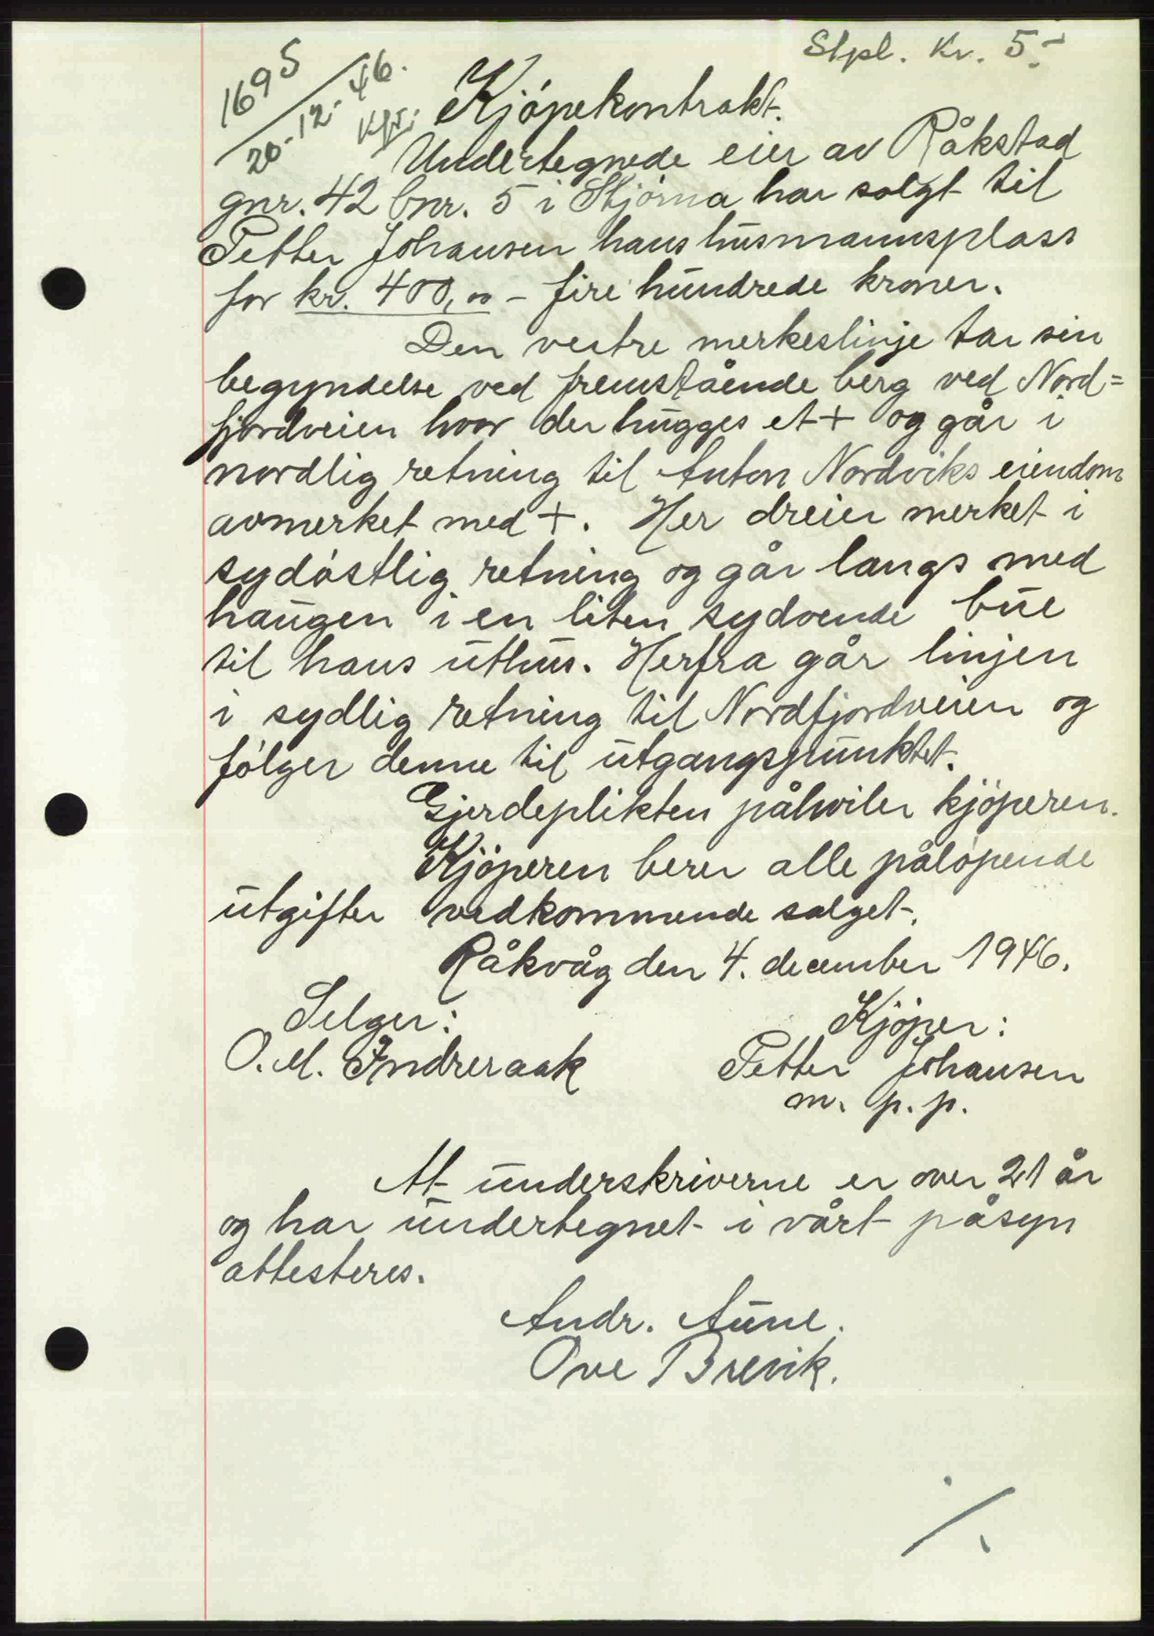 Stpl. Kr. 5.-
1695
20.-12.-46.
Kjøpekontrakt.
Undertegnede eier av Råkstad
gnr. 42 bnr. 5 i Stjørna har solgt til
Petter Johansen hans husmannsplass
for kr. 400,00 - fire hundrede kroner.
Den vestre merkeslinje tar sin
begyndelse ved fremstående berg ved Nord=
fjordveien hvor der hugges et + og går i
nordlig retning til Anton Nordviks eiendom
avmerket med +. Her dreier merket i
sydøstlig retning og går langs med
haugen i en liten sydvende bue
til hans uthus. Herfra går linjen
i sydlig retning til Nordfjordveien og
følger denne til utgangspunktet.
Gjerdeplikten påhviler kjøperen.
Kjøperen berer alle påløpende
utgifter vedkommende salget.
Råkvåg den 4. december 1946.
Selger: Kjøper:
O. M. Indreraak Petter Johansen
m. p. p.
At underskriverne er over 21 år
og har undertegnet i vårt påsyn
attesteres.
Andr. Aune.
Ove Brevik.